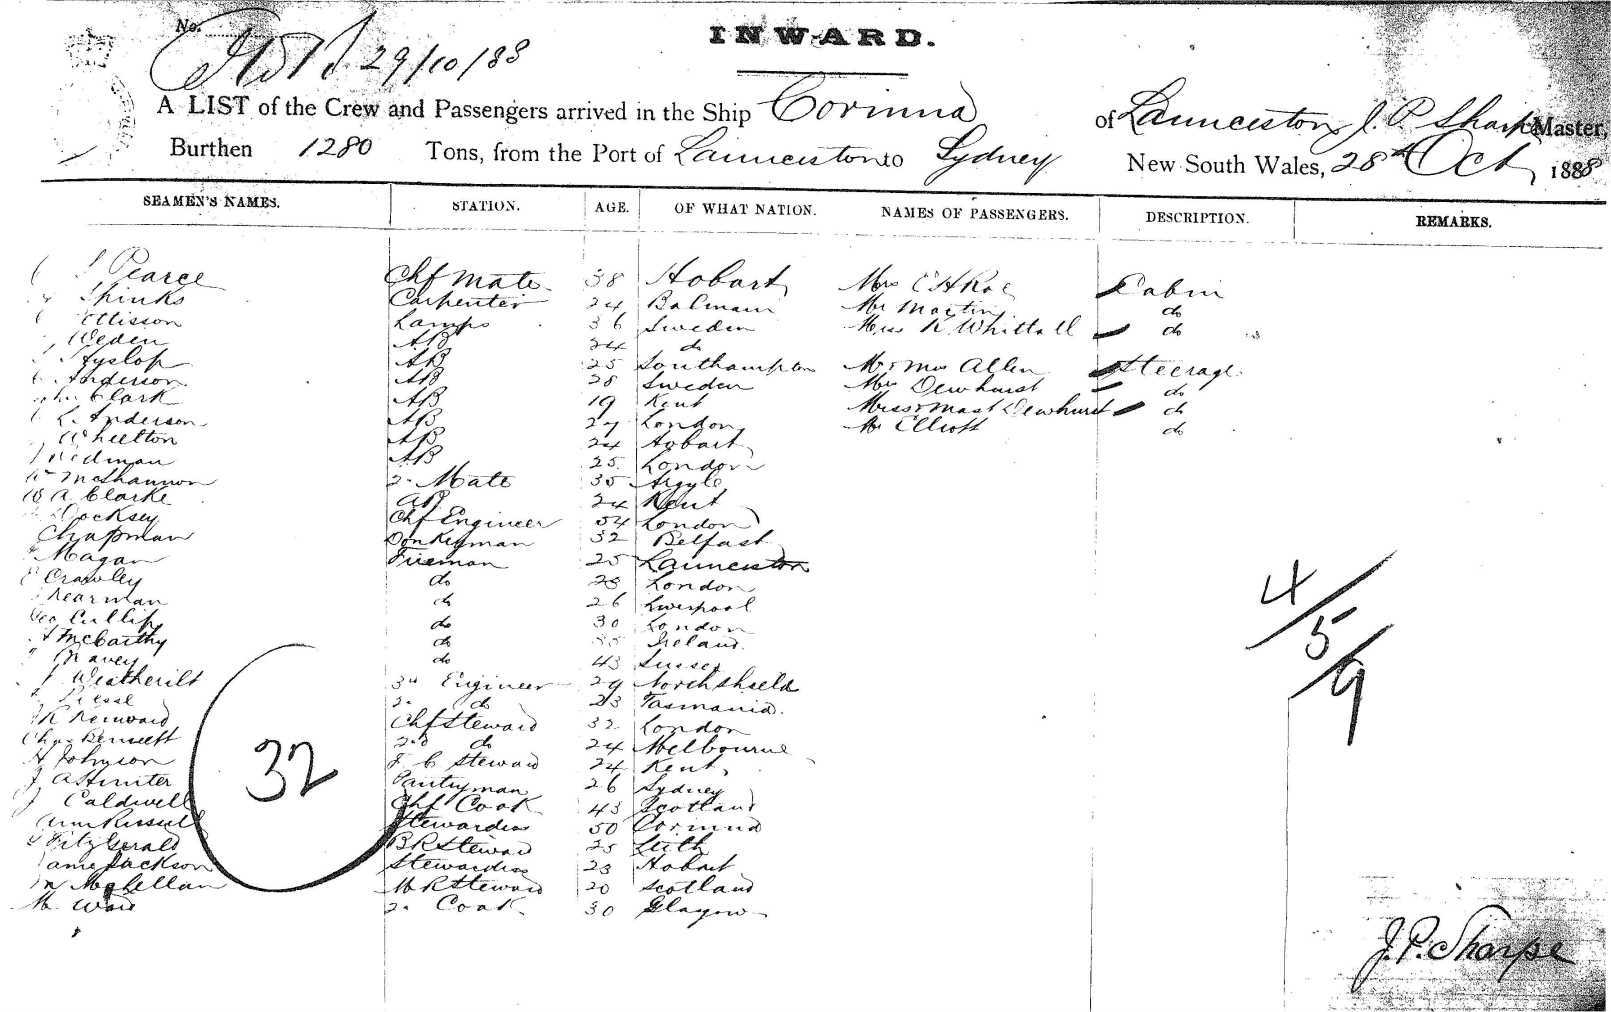 No.
29/10/88
INWARD.
A LIST of the Crew and Passengers arrived in the Ship Corinna of Launceston J. P. Sharpe Master,
Burthen 1280 Tons, from the Port of Launceston to Sydney New South Wales, 28th Oct 1888
SEAMEN'S NAMES. STATION. AGE. OF WHAT NATION. NAMES OF PASSENGERS. DESCRIPTION. REMARKS.
Pearce Chf Mate 38 Hobart Mrs Cabin
Shinks Carpenter 24 Balmain Mr Martin do
Ellisson Lamps 36 Sweden Miss K Whittall do
Weden AB 24 do
Hyslop AB 25 Southampton Mr & Mrs Allen Steerage
Anderson AB 28 Sweden Mrs Dewhurst do
Clark AB 19 Kent Miss & Mast Dewhurst do
L. Anderson AB 27 London Mr Elliott do
Wheelton AB 24 Hobart
AB 25 London
McShannon 2 Mate 35 Argyle
W A Clarke AB 24 Kent
Docksey Chf Engineer 54 London
Chapman Donkeyman 32 Belfast
Magan Fireman 25 Launceston
Crawley do 28 London
do 26 Liverpool
Geo Cullip do 30 London
McCarthy do Ireland
do 43 Sussex
J Weatherilt 3rd Engineer 29 North Shield
2 do 23 Tasmania
Chf Steward 32 London
Chas Bennett 2nd do 24 Melbourne
A Johnson F C Steward 24 Kent
J A Hunter Pantryman 26 Sydney
J Caldwell Chf Cook 43 Scotland
Ann Russell Stewardess 50 Corinna
Fitzgerald B R Steward 25 Leith
Jane Jackson Stewardess 23 Hobart
McLellan M R Steward 20 Scotland
M Ward 2 Cook 30 Glasgow
32
4/5/9
J. P. Sharpe